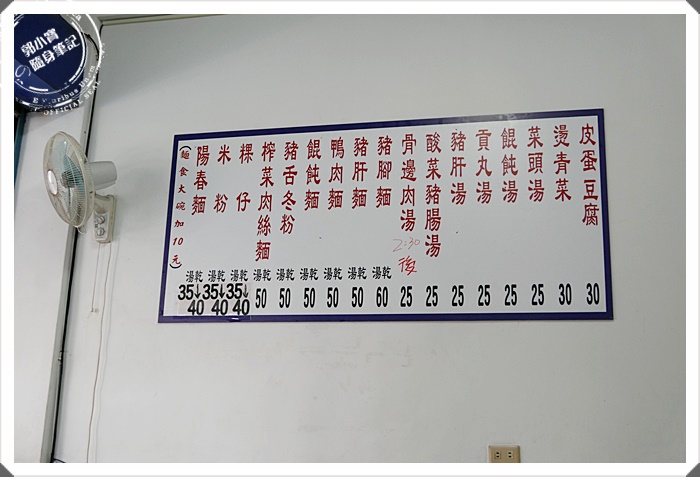 郭小寶
隨身筆記
(麵食大碗加10元)
陽春麵 湯乾 35↓40
米粉 湯乾 35↓40
粿仔 湯乾 35↓40
榨菜肉絲麵 湯乾 50
豬舌冬粉 湯乾 50
餛飩麵 湯乾 50
鴨肉麵 湯乾 50
豬肝麵 湯乾 50
豬腳麵 湯乾 60
骨邊肉湯 2:30後 25
酸菜豬腸湯 25
豬肝湯 25
貢丸湯 25
餛飩湯 25
菜頭湯 25
燙青菜 30
皮蛋豆腐 30